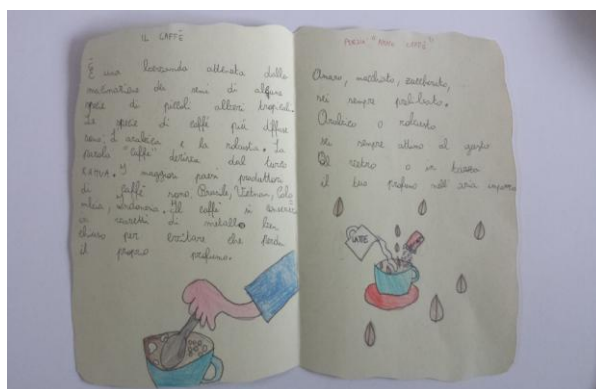 IL CAFFÈ
È una bevanda ottenuta dalla
macinazione dei semi di alcune
specie di piccoli alberi tropicali.
Le specie di caffè più diffuse
sono: L'arabica e la robusta. La
parola "caffè" deriva dal turco
I maggiori paesi produttori
di caffè sono Brasile, Vietnam, Colo
mbia, Indonesia. Il caffè si conserva
in vasetti di metallo ben
chiuso per evitare che perda
il proprio profumo.
POESIA "AMO CAFFÈ"
Amaro, macchiato, zuccherato,
sei sempre prelibato.
Arabica o robusta
sei sempre ottimo al gusto
in tazza
il tuo profumo nell'aria
LATTE